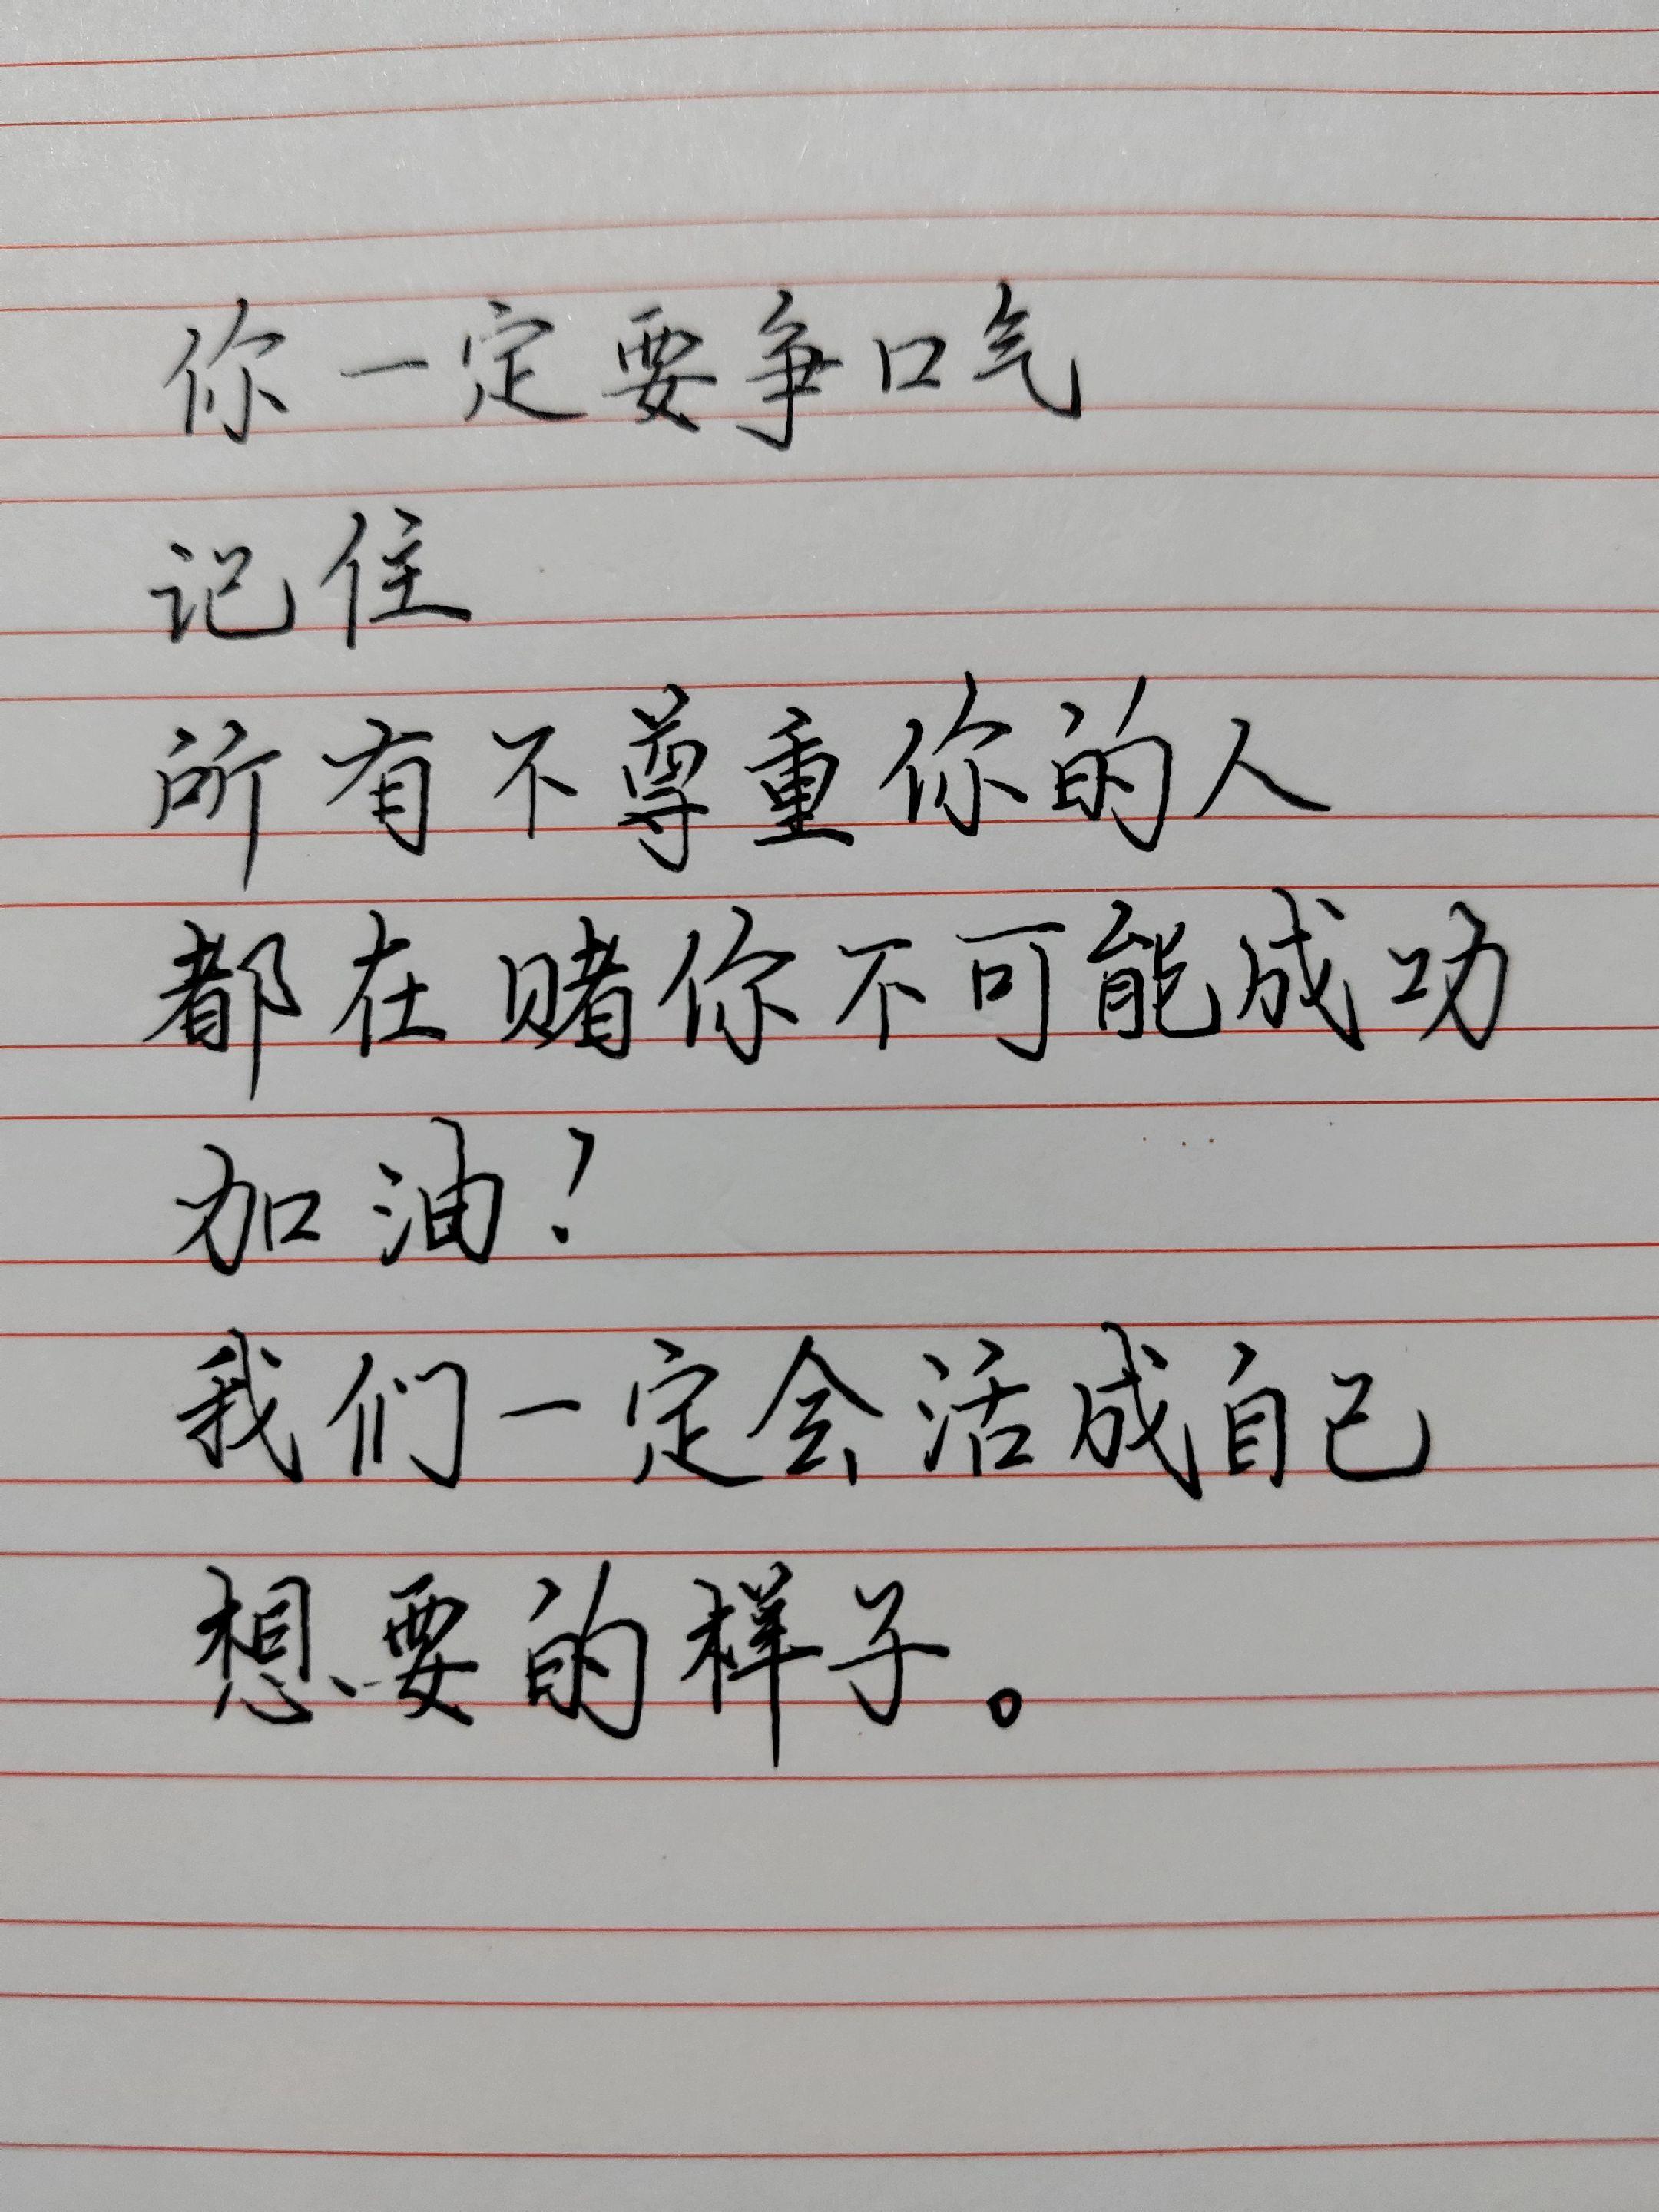 你一定要争口气
记住
所有不尊重你的人
都在赌你不可能成功
加油！
我们一定会活成自己
想要的样子。